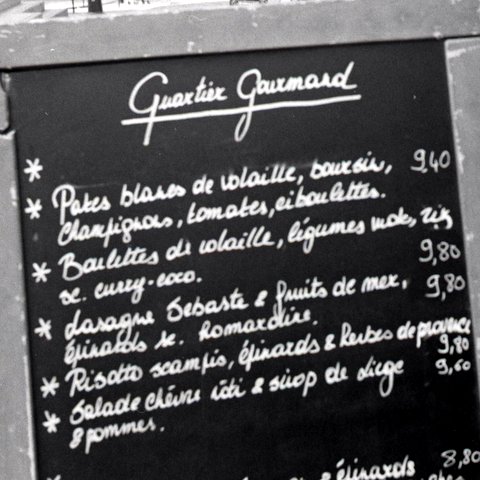 Quartier Gourmand
*
* Pates blanes de volaille, boursin, 9,40
Champignons, tomates, ciboulettes.
* Boulettes de volaille, légumes wok, riz
sc. curry-coco. 9,80
* Lasagne Sebaste & fruits de mer, 9,80
Épinards sc. Homardine.
* Risotto scampis, épinards & herbes de provence
9,80
* Salade chèvre rôti & sirop de liège 9,60
& pommes.
& épinards 8,80